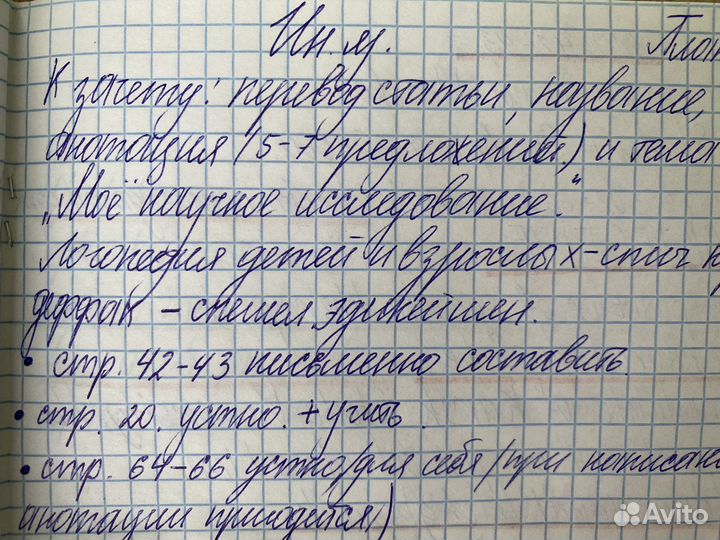 Ин. яз. План
К зачету: перевод статьи, название,
анотация (5-7 предложений) и тема
„Моё научное исследование."
Логопедия детей и взрослых-спич
деффак - спешел эдикейшен.
• стр. 42-43 письменно составить.
• стр. 20. устно. + учить.
• стр. 64-66 устно/для себя/при написан
анотации пригодится)
Avito